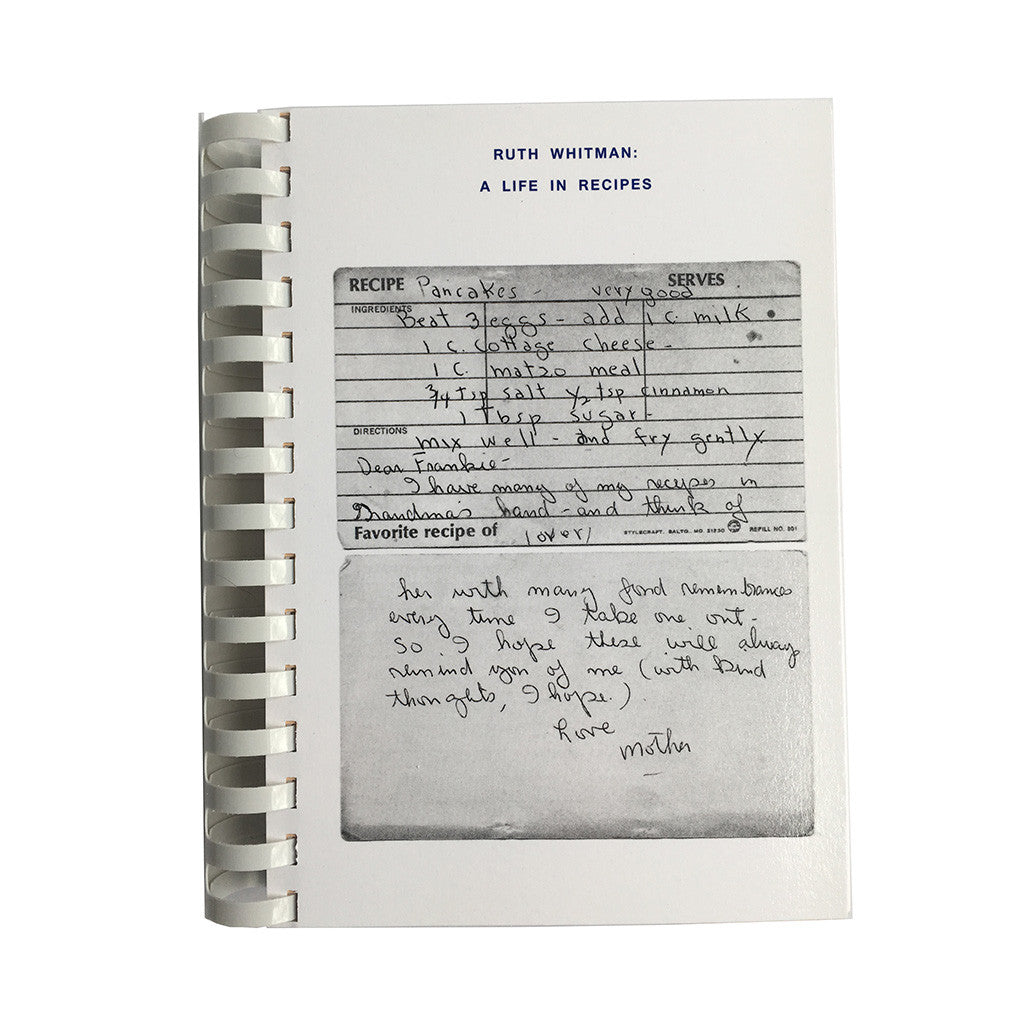 RUTH WHITMAN:
A LIFE IN RECIPES
RECIPE Pancakes - very good SERVES
INGREDIENTS
Beat 3 eggs - add 1 c. milk
1 c. Cottage cheese -
1 c. matzo meal
3/4 tsp salt 1/2 tsp cinnamon
1 Tbsp sugar -
DIRECTIONS
mix well - and fry gently
Dear Frankie -
I have many of my recipes in
Grandma's hand - and think of
Favorite recipe of (over) STYLECRAFT, BALTO., MD. 21230 REFILL NO. 301
her with many fond remembrances
every time I take one out -
so I hope these will always
remind you of me (with kind
thoughts, I hope.)
Love
Mother